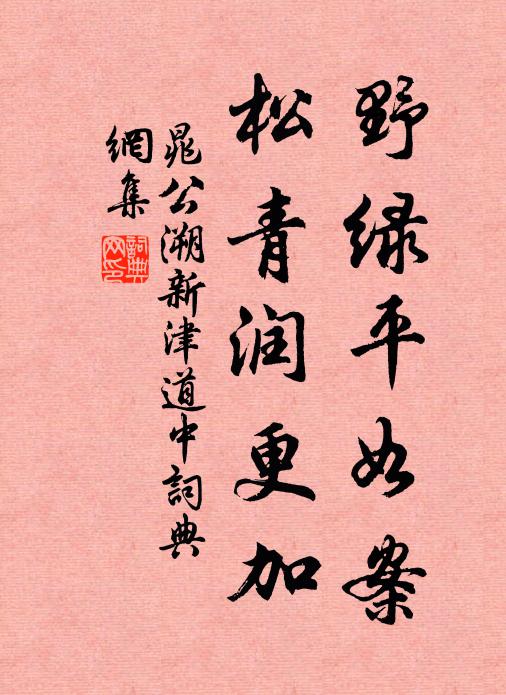 野绿平如案
松青润更加
晁公溯新津道中詞典
網集
詞典
网印